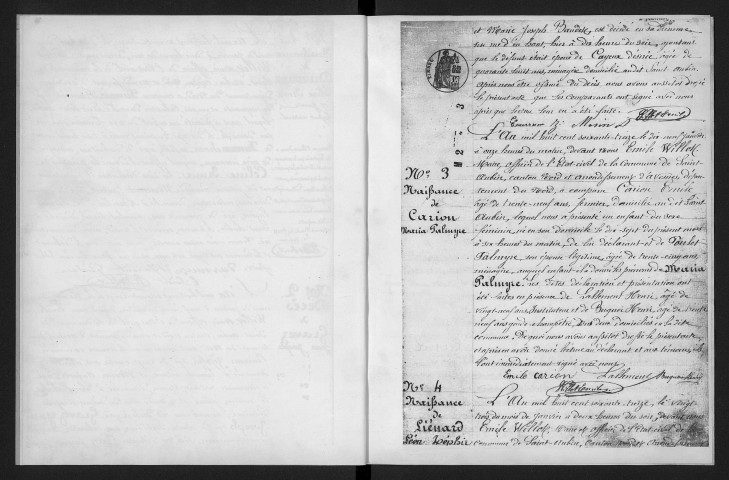 et Marie Joseph Baudelet, est décédé en sa demeure
hier à dix heures du soir, ajoutant
que le défunt était époux de Cayeux
quarante huit ans, ménagère, domiciliée audit Saint Aubin
Après nous être assuré du décès, nous avons dressé
le présent acte que les comparants ont signé avec nous
après que lecture leur en a été faite.
N° 3
Naissance
de
Carion
Maria Palmyre
L'An mil huit cent soixante-treize le dix-neuf Janvier
à onze heures du matin, devant nous Emile Willot
Maire, officier de l'Etat-civil de la Commune de Saint-
Aubin, canton Nord et arrondissement d'Avesnes, dépar-
tement du Nord, a comparu Carion Emile
âgé de trente-neuf ans, domicilié audit Saint
Aubin, lequel nous a présenté un enfant du sexe
féminin, né en son domicile le dix-sept du présent mois
à six heures du matin, de lui déclarant et de
Palmyre, son épouse légitime, âgée de trente-cinq ans
ménagère, auquel enfant il a donné les prénoms de Maria
Palmyre. Les dites déclaration et présentation ont
été faites en présence de Lallement Henri, âgé de
vingt-neuf ans, Instituteur et de Henri, âgé de trente
neuf ans, garde-champêtre, tous deux domiciliés en la dite
commune. De quoi nous avons aussitôt dressé le présent acte
et après en avoir donné lecture au déclarant et aux témoins, ils
l'ont immédiatement signé avec nous
Emile Carion Lallement
N° 4
Naissance
de
Liénard
Léon
L'An mil huit cent soixante-treize, le vingt
trois du mois de Janvier à deux heures du soir, devant nous
Emile Willot, Maire et officier de l'Etat civil de la
commune de Saint-Aubin, canton Nord et